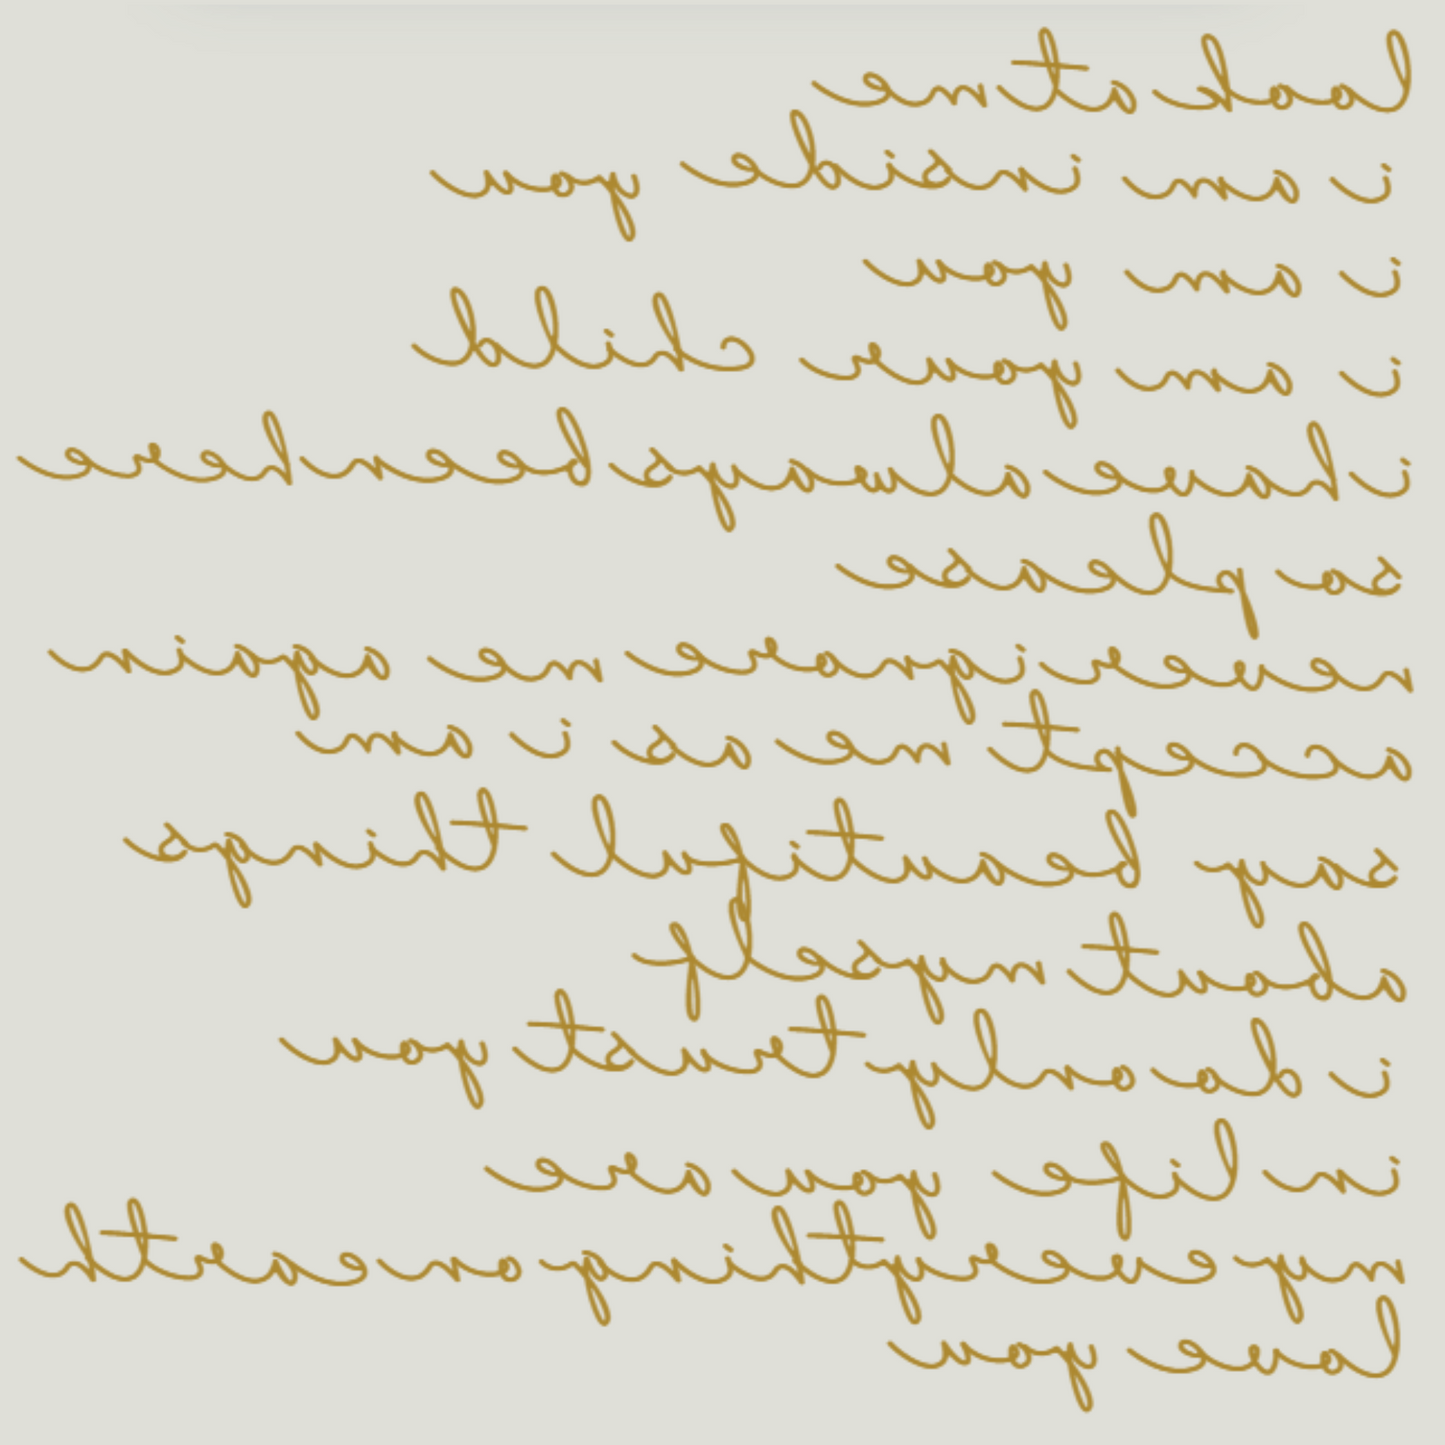 look at me
i am inside you
i am you
i am your child
i have always been here
so please
never ignore me again
accept me as i am
say beautiful things
about myself
i do only trust you
in life you are
my everything on earth
love you